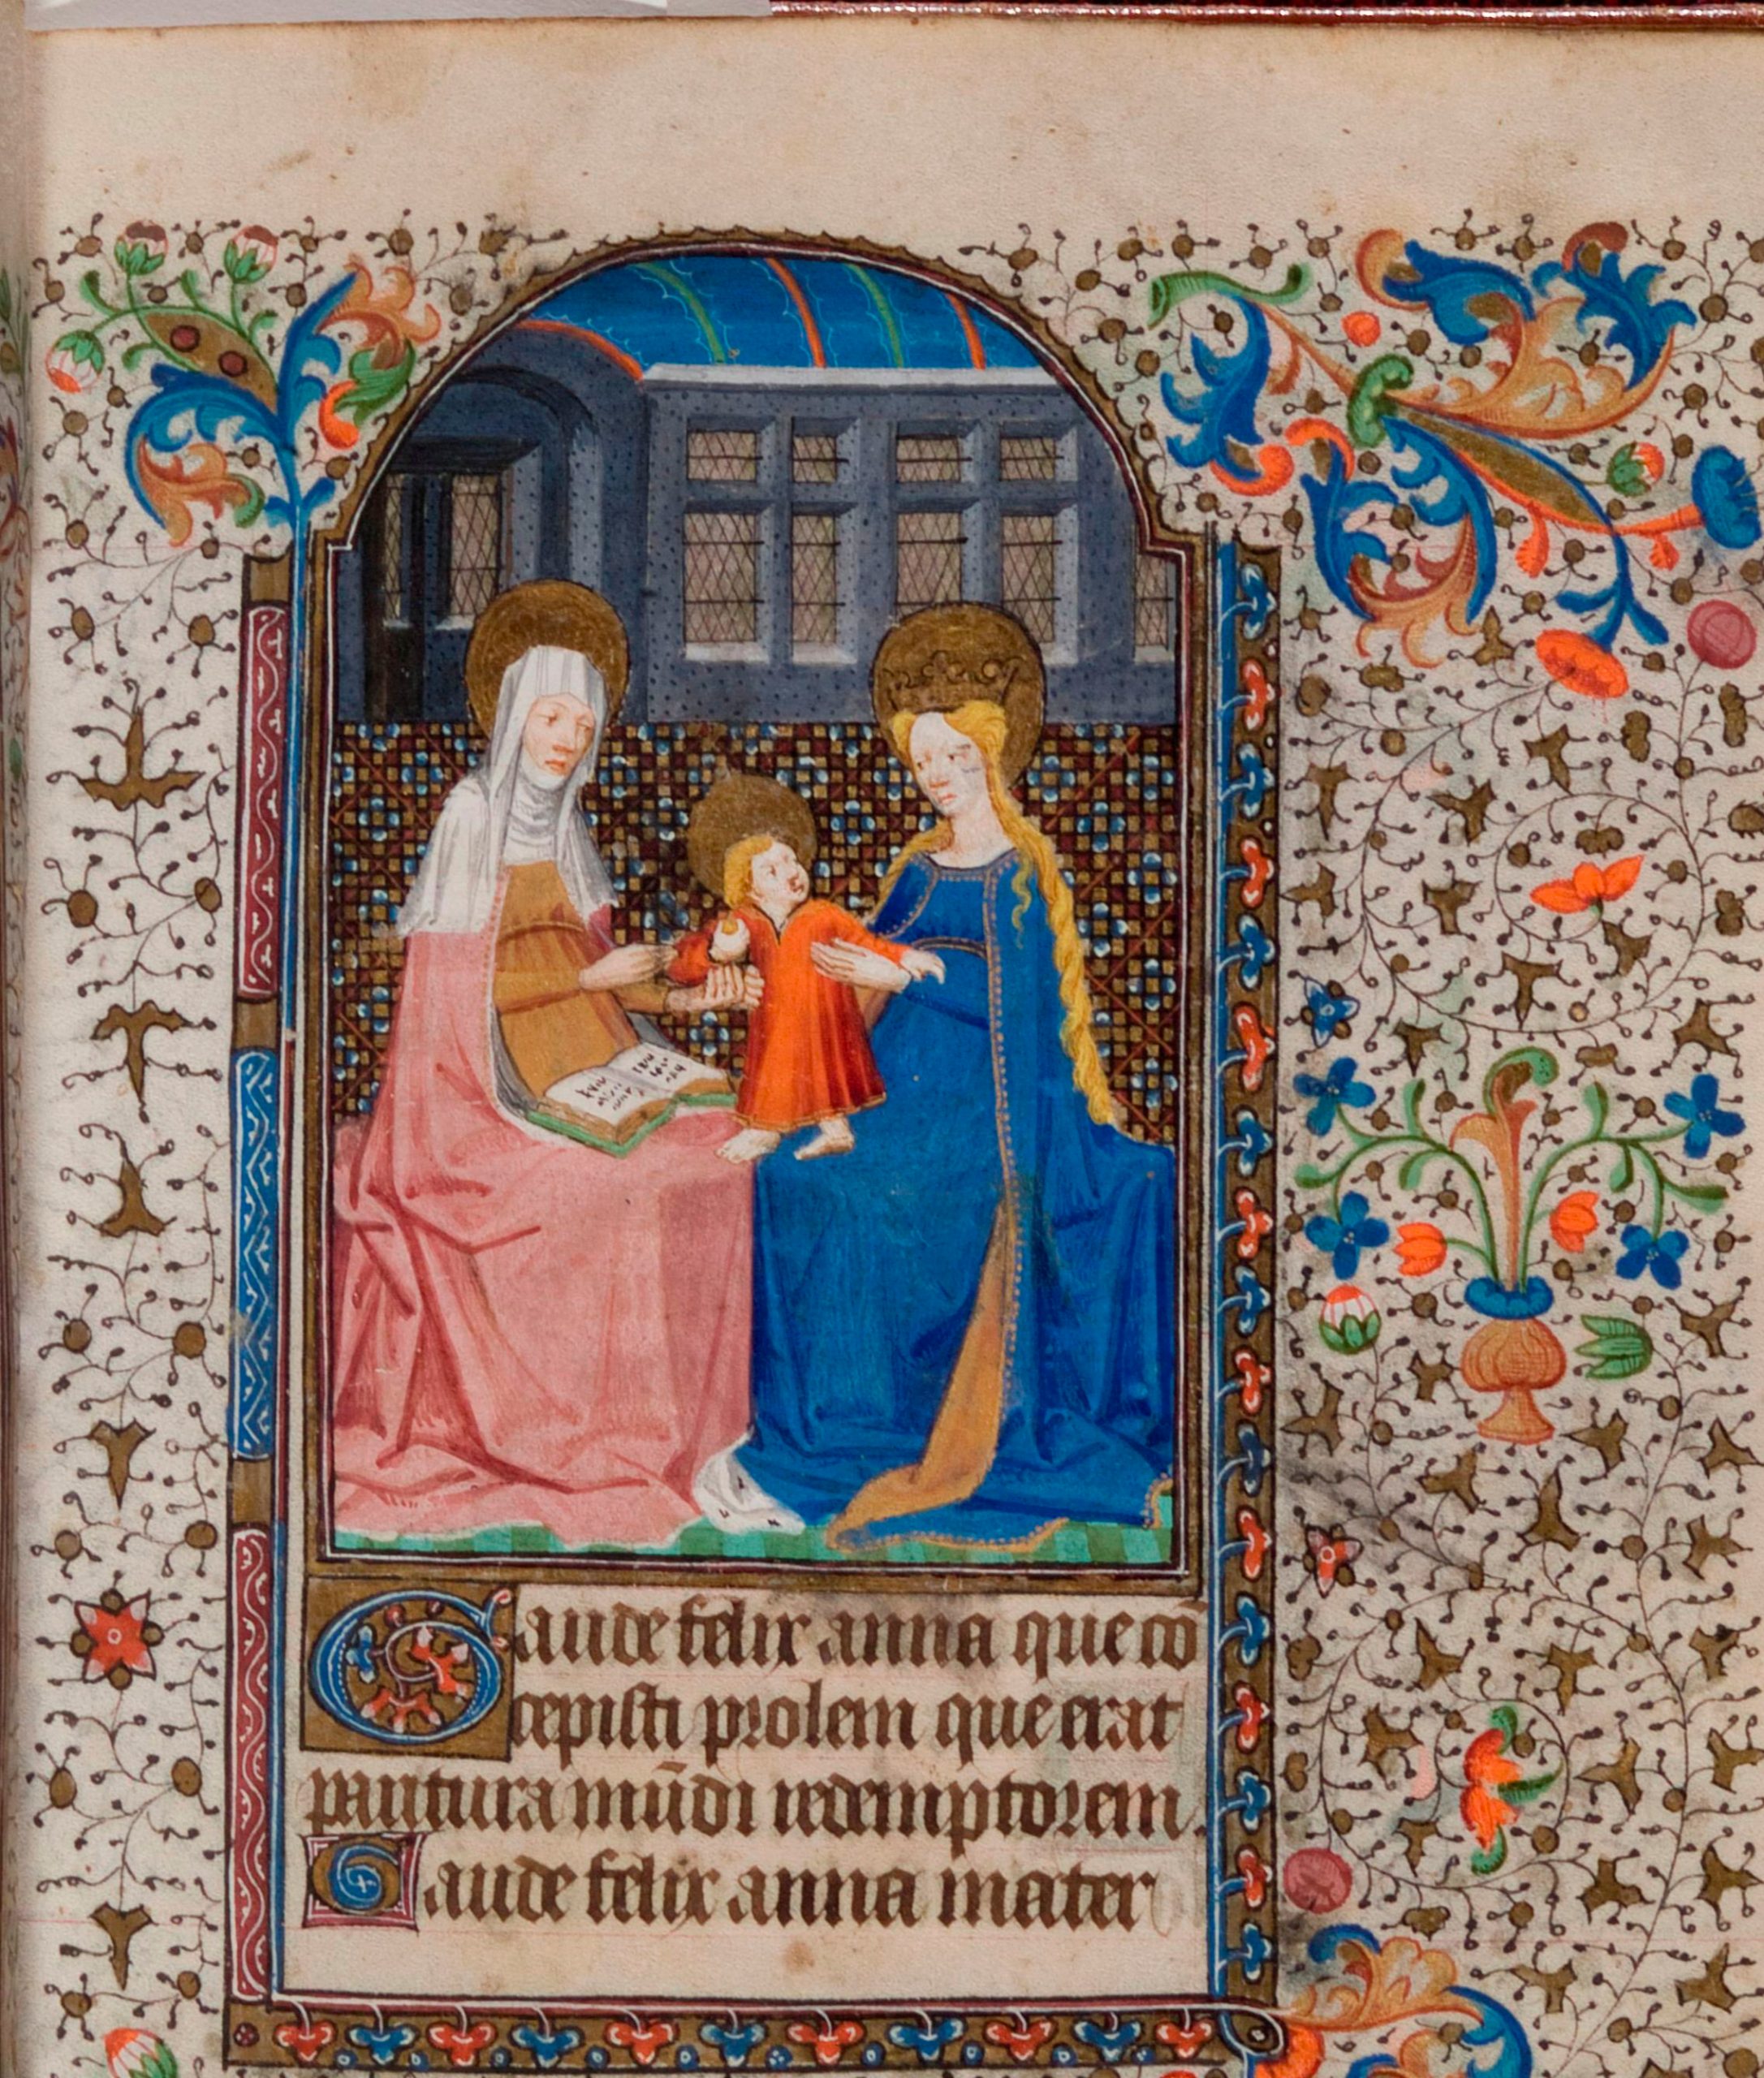 Gaude felix anna que cō
cepisti prolem que erat
paritura mūdi redemptorem.
Gaude felix anna mater